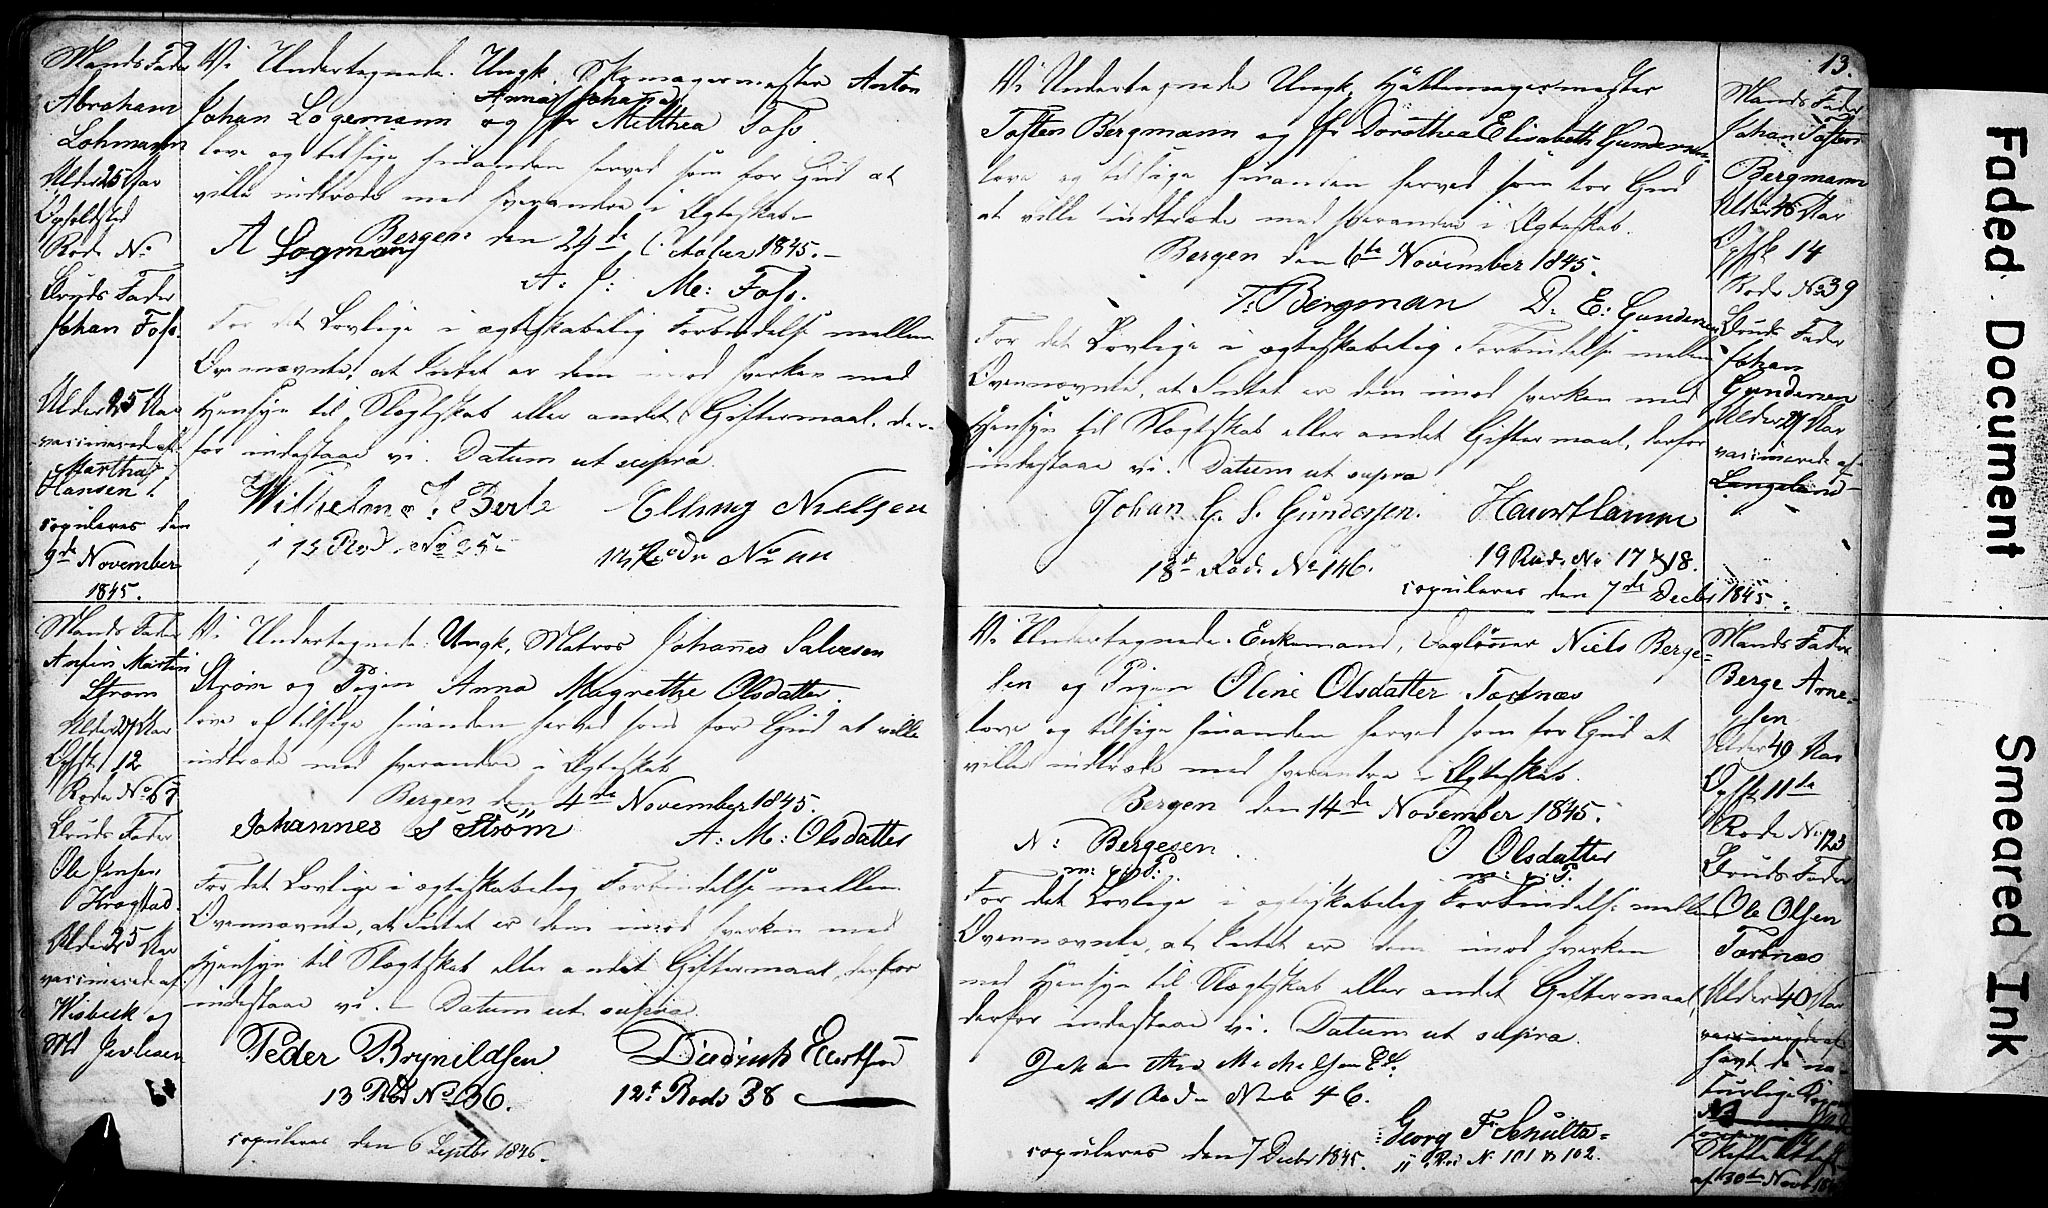 Mands Fader
Abraham
Lohmann
Alder 25 Aar
Opholdsted
Rode No
Bruds Fader
Johan Foss.
Alder 25 Aar
vaccinerede af
Martha
Hansen
copuleres den
9de November
1845.
Vi Undertegnede. Ungk. Skomagermester Anton
Anna Johana
Johan Logemann og Jfr Milthea Foss.
love og tilsige hinanden herved som for Gud at
ville indtræde med hverandre i Ægteskab.
Bergen den 24de October 1845.
A Logman
A. J: M: Foss.
For det Lovlige i ægteskabelig Forbindelse mellem
Ovennævnte, at Intet er dem imod hverken med
Hensyn til Slægtskab eller andet Giftermaal, der-
for indestaae vi. Datum ut supra.
Wilhelm J. Berle Elling Nielsen
13 Rod. No 25
Rode No
Mands Fader
Anfin Martin
Strøm
Alder 27 Aar
Opst 12
Rode No 67
Bruds Fader
Ole Jensen
Krogstad.
Alder 25 Aar
vaccinerede af
Wisbech og
Md
Vi Undertegnede Ungk. Matros Johannes Salvesen
Strøm og Pigen Anna Magrethe Olsdatter
love og tilsige hinanden herved som for Gud at ville
indtræde med hverandre i Ægteskab
Bergen den 4de November 1845.
Johannes S Strøm
A: M: Olsdatter
For det Lovlige i ægteskabelig Forbindelse mellem
Ovennævnte, at Intet er dem imod hverken med
Hensyn til Slægtskab eller andet Giftermaal, derfor
indestaae vi. - Datum ut supra.
Peder Brynildsen Diedrich Evertsen
13 Rode No 36. 12te Rode 38
copuleres den 6 Septbr 1846.
13.
Vi Undertegnede Ungk. Hattemagermester
Tosten Bergmann og Jfr Dorothea Elisabeth Gundersen
love og tilsige hinanden herved som for Gud
at ville indtræde med hverandre i Ægteskab.
Bergen den 6te November 1845.
T. Bergman D. E: Gundersen
For det Lovlige i ægteskabelig Forbindelse mellem
Ovennævnte, at Intet er dem imod hverken med
Hensyn til Slægtskab eller andet Giftermaal, derfor
indestaae vi. Datum ut supra
Johan G. S. Gundersen.
18de Rode No 146. 19 Rode No 17 & 18.
copuleres den 7de Decbr 1845.
Mands Fader
Johan Tosten
Bergmann
Alder 45 Aar
Opst 14
Rode No 39
Bruds Fader
Johan
Gundersen
Alder 27 Aar
vaccinerede af
Langeland
Vi Undertegnede. Enkemand, Dagløner Niels Berge=
sen og Pigen Oline Olsdatter Tartnæs
love og tilsige hinanden herved som for Gud at
ville indtræde med hverandre i Ægteskab.
Bergen den 14de November 1845.
N: Bergesen O Olsdatter
m: p: P: m: p: P:
For det Lovlige i ægteskabelig Forbindelse mellem
Ovennævnte, at Intet er dem imod hverken
med Hensyn til Slægtskab eller andet Giftermaal,
derfor indestaae vi. Datum ut supra.
11 Rode No 46.
Georg F. Schultz
11 Rod No 101 & 102.
copuleres den 7 Decbr 1845.
Mands Fader
Berge Arne-
sen
Alder 49 Aar
Opst 11te
Rode No 123
Bruds Fader
Ole Olsen
Tartnæs
Alder 40 Aar
vaccinerede af
havt de na-
turlige Kopper
Skifte Attest
af 30te Novbr 1845
Faded Document
Smeared Ink